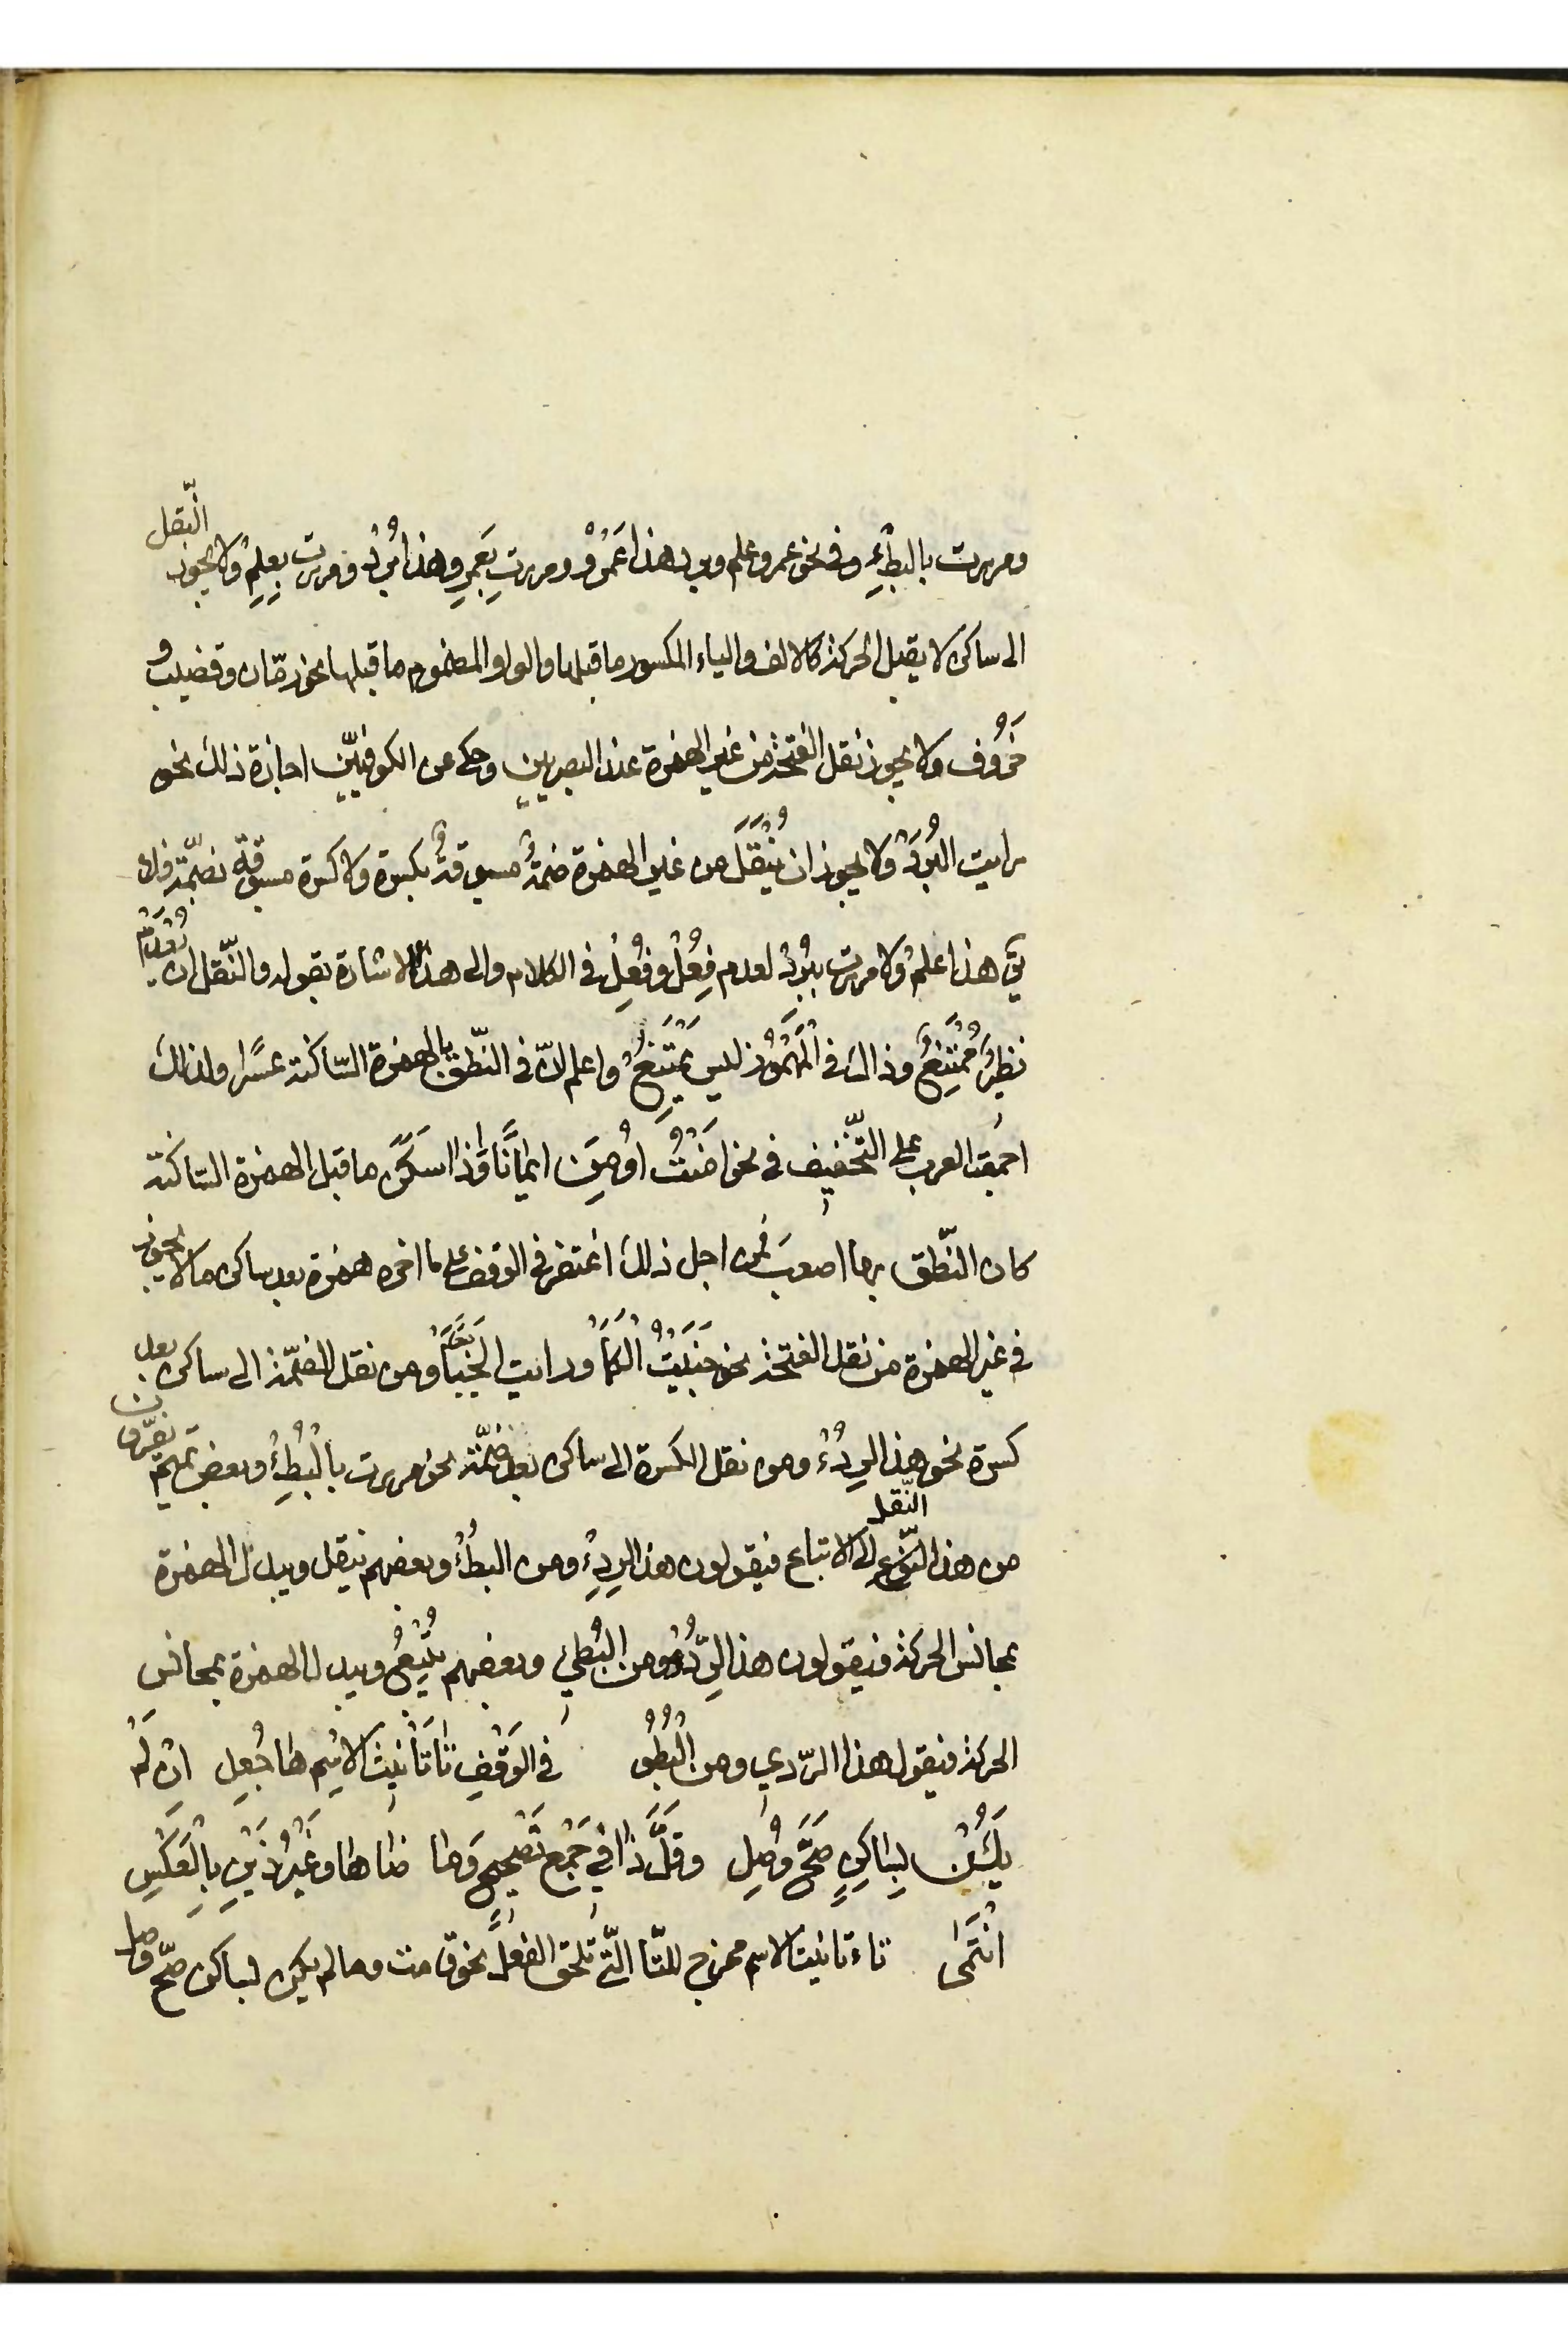 ومررت بالبطِئْ وفى نحو عمرو وعلم وبرد هذا عَمُرْو ومررت بِعَمِرو وهذا بُرُدْ ومررت بِعِلِمْ ولا يجوز النّقل
الى ساكن لا يقبل الحركة كالالف والياء المكسور ما قبلها والواو المضموم ما قبلها نحو رمّان وقضيب و
خَرُوف ولا يجوز نقل الفتحة من غير الهمزة عند البصريين وحكى عن الكوفيّين اجازة ذلك نحو
رايت البُرَدْ ولا يجوز ان يُنْقَلَ من غير الهمزة ضمةٌ مسبوقةٌ بكسرة ولا كسرة مسبوقة بضمّة فلا
يق هذا عِلُمْ ولا مررت ببُرِدْ لعدم فِعُلْ وفُعِلْ فى الكلام والى هذا الاشارة بقوله والنّقل ان يُعْدَمْ
نظِيرٌ مُمْتَنِعْ وذاك فى الْمَهْمُوزِ ليس يَمْتَنِعْ واعلم انّ فى النّطق بالهمزة السّاكنة عسرًا ولذلك
اجمعت العرب على التّخفيف فى نحو امَنْتُ اُومِنَ ايمانًا واذا سكن ما قبل الهمزة السّاكنة
كان النّطق بها اصعب فمن اجل ذلك اغتفر فى الوقف على ما اخره همزة بعد ساكن ما لا يجوز
فى غير الهمزة من نقل الفتحة نحو جَنَيْتُ الْكَمَأْ ورايت الخَبَأْ ومن نقل الضمّة الى ساكن بعد
كسرة نحو هذا الرِدُءْ ومن نقل الكسرة الى ساكن بعد ضمّة نحو مررت بالْبُطِئْ وبعض تميم يفرّون
من هذا النّوع النّقل الى الاتباع فيقولون هذا الرِدِءْ ومن البطُءْ وبعضهم ينقل ويبدل الهمزة
بمجانس الحركة فيقولون هذا الرِّدُو ومن البُطِي وبعضهم يُتْبِعُ ويبدل الهمزة بمجانس
الحركة فيقول هذا الرّدي ومن الْبُطُو فى الْوَقْفِ تَا تَأْنِيثِ الاسْمِ هَا جُعِل ان لَمْ
يَكُنْ بِسَاكِنٍ صَحَّ وُصِل وقَلَّ ذَا فِي جَمْعِ تَصْحِيحٍ وَمَا ضَاهَا وَغَيْرُ ذَيْنِ بِالْعَكْسِ
انْتَمَى تاء تانيث الاسم مخرج للتا الّتى تلحق الفعل نحو قامت وما لم يكن لساكن صحّ وصل